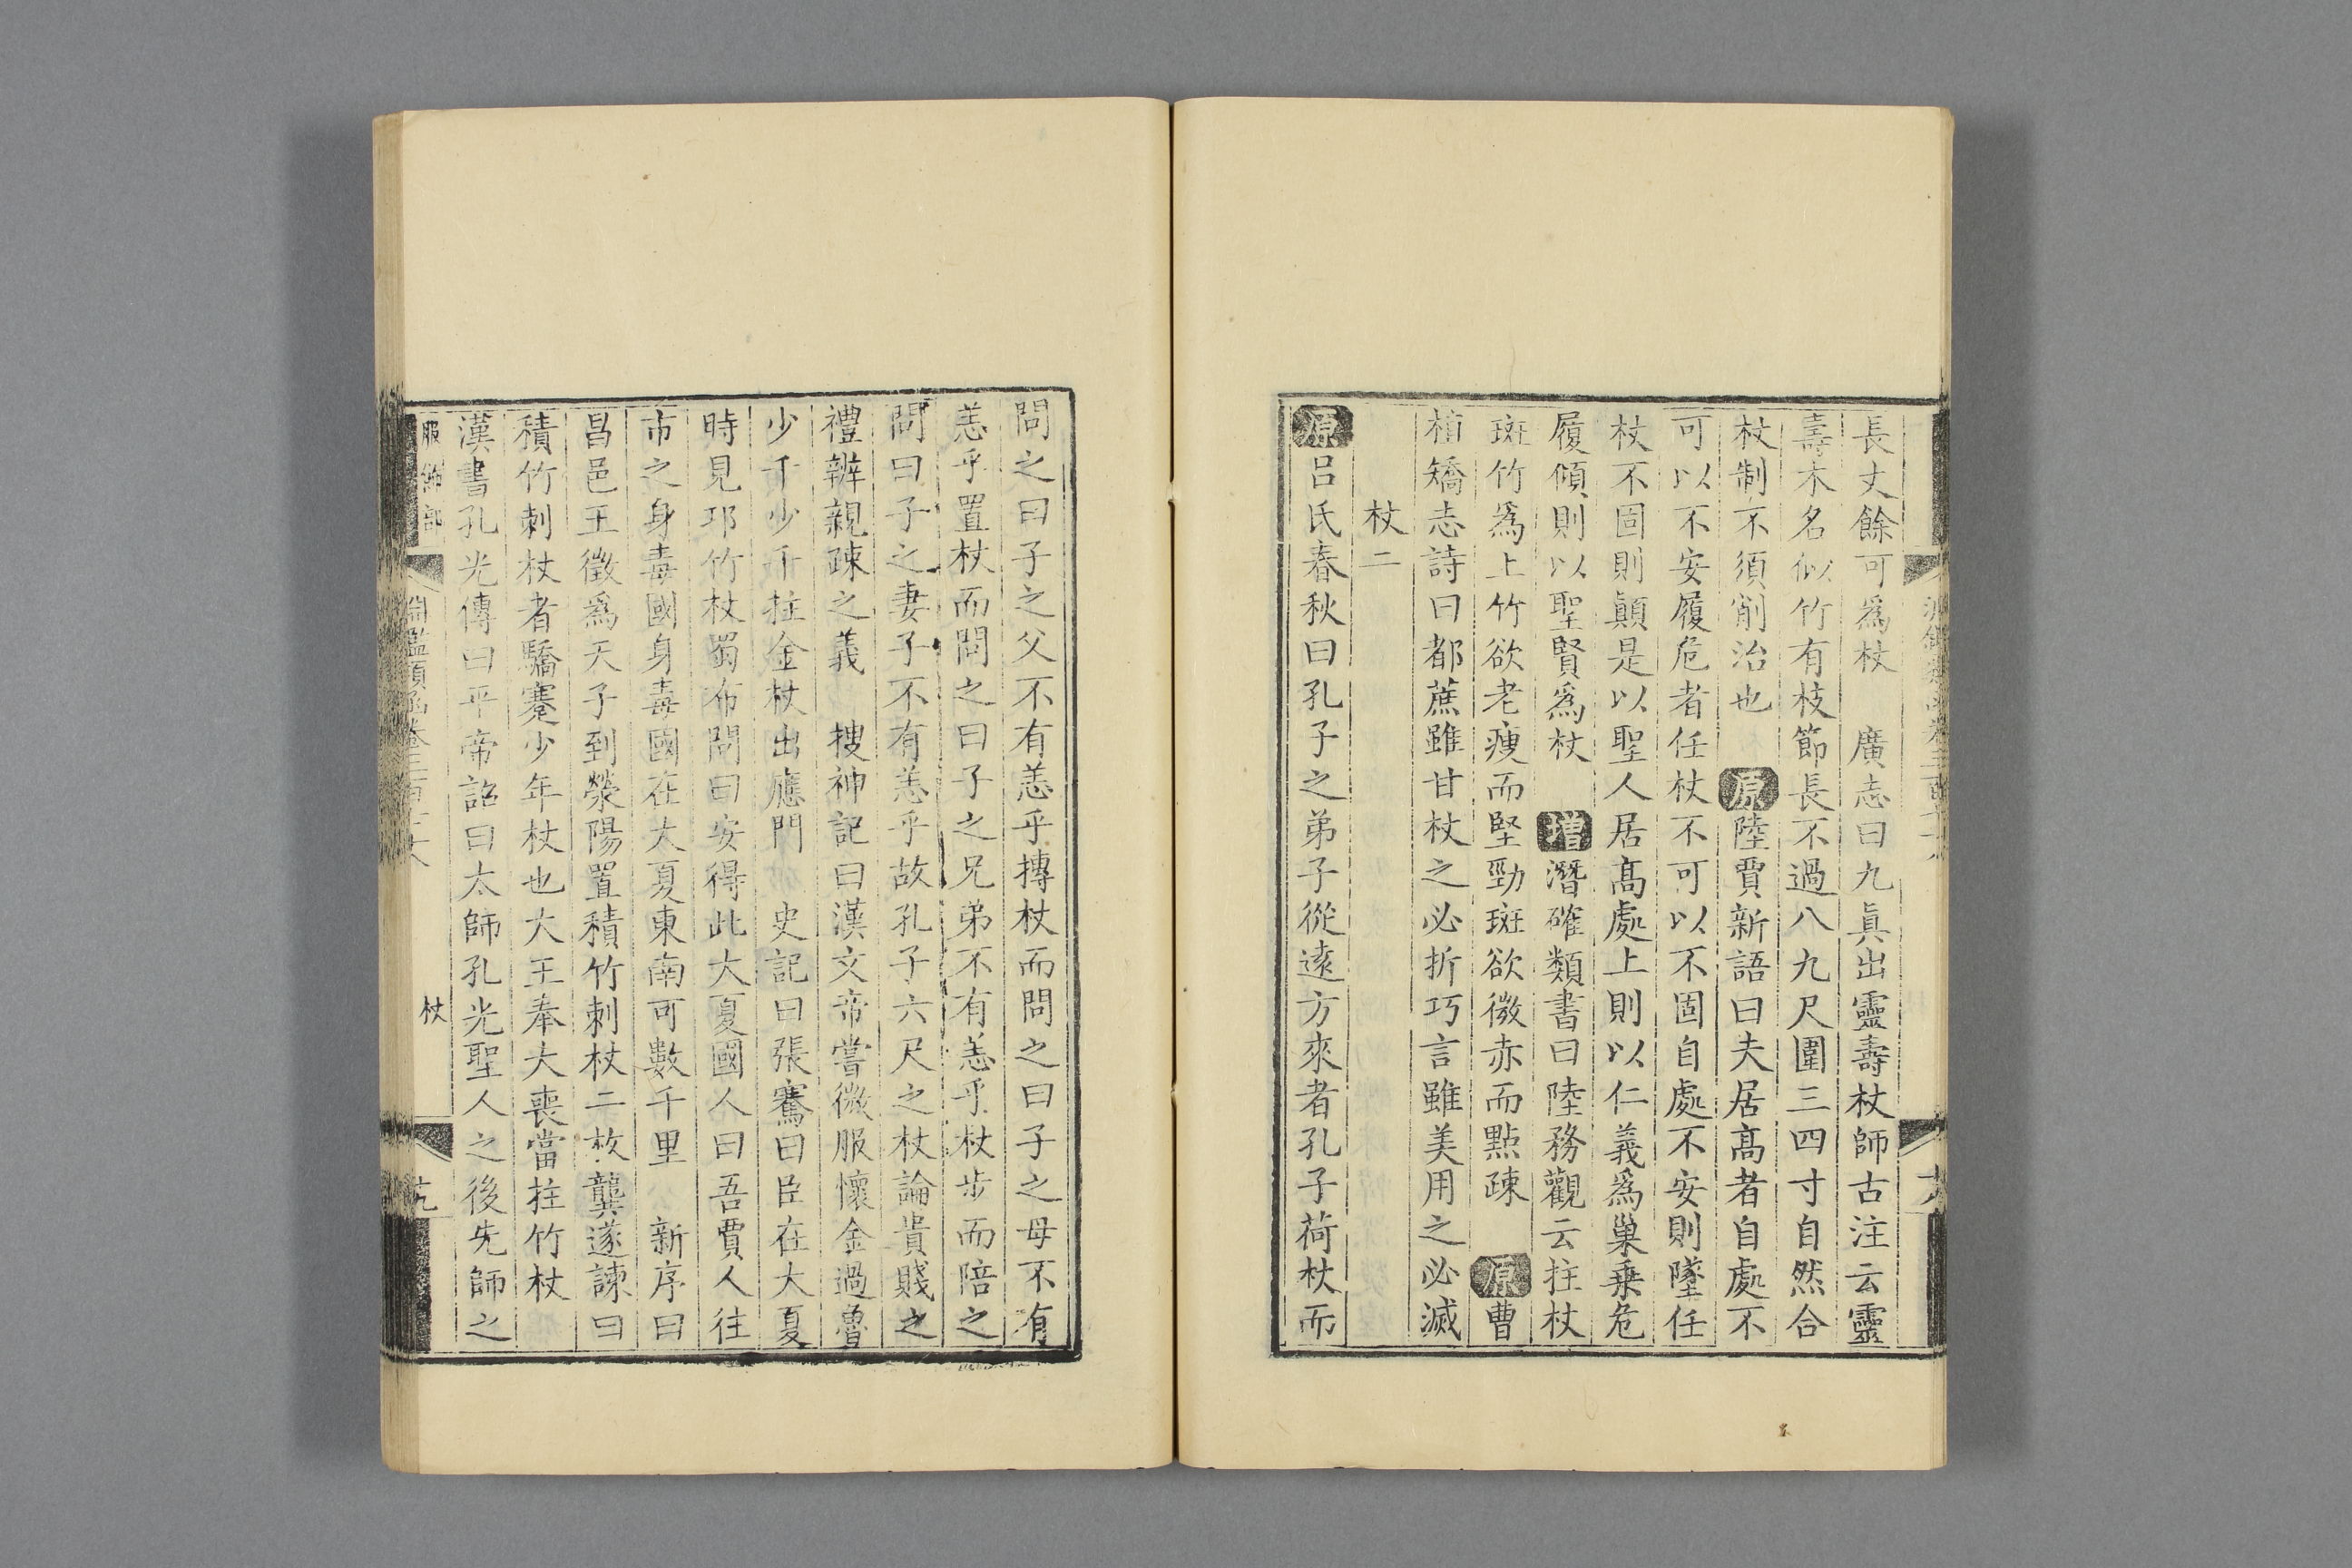 長丈餘可爲杖　廣志曰九眞出靈壽杖師古注云靈
壽木名似竹有枝節長不過八九尺圍三四寸自然合
杖制不須削治也　原陸賈新語曰夫居高者自處不
可以不安履危者任杖不可以不固自處不安則墜任
杖不固則顚是以聖人居高處上則以仁義爲巢乗危
履傾則以聖賢爲杖　增潛確類書曰陸務觀云拄杖
斑竹爲上竹欲老瘦而堅勁斑欲微赤而點疎　原曹
植矯志詩曰都蔗雖甘杖之必折巧言雖美用之必滅
杖二
原呂氏春秋曰孔子之弟子從遠方來者孔子荷杖而
問之曰子之父不有恙乎摶杖而問之曰子之母不有
恙乎置杖而問之曰子之兄弟不有恙乎杖步而陪之
問曰子之妻子不有恙乎故孔子六尺之杖論貴賤之
禮辨親疎之義　搜神記曰漢文帝嘗微服懷金過魯
少千少千拄金杖出應門　史記曰張騫曰臣在大夏
時見邛竹杖蜀布問曰安得此大夏國人曰吾賈人往
市之身毒國身毒國在大夏東南可數千里　新序曰
昌邑王徵爲天子到滎陽置積竹刺杖二枚龔遂諫曰
積竹刺杖者驕蹇少年杖也大王奉大喪當拄竹杖
漢書孔光傳曰平帝詔曰太師孔光聖人之後先師之
服飾部
淵鑑類函卷三百
杖